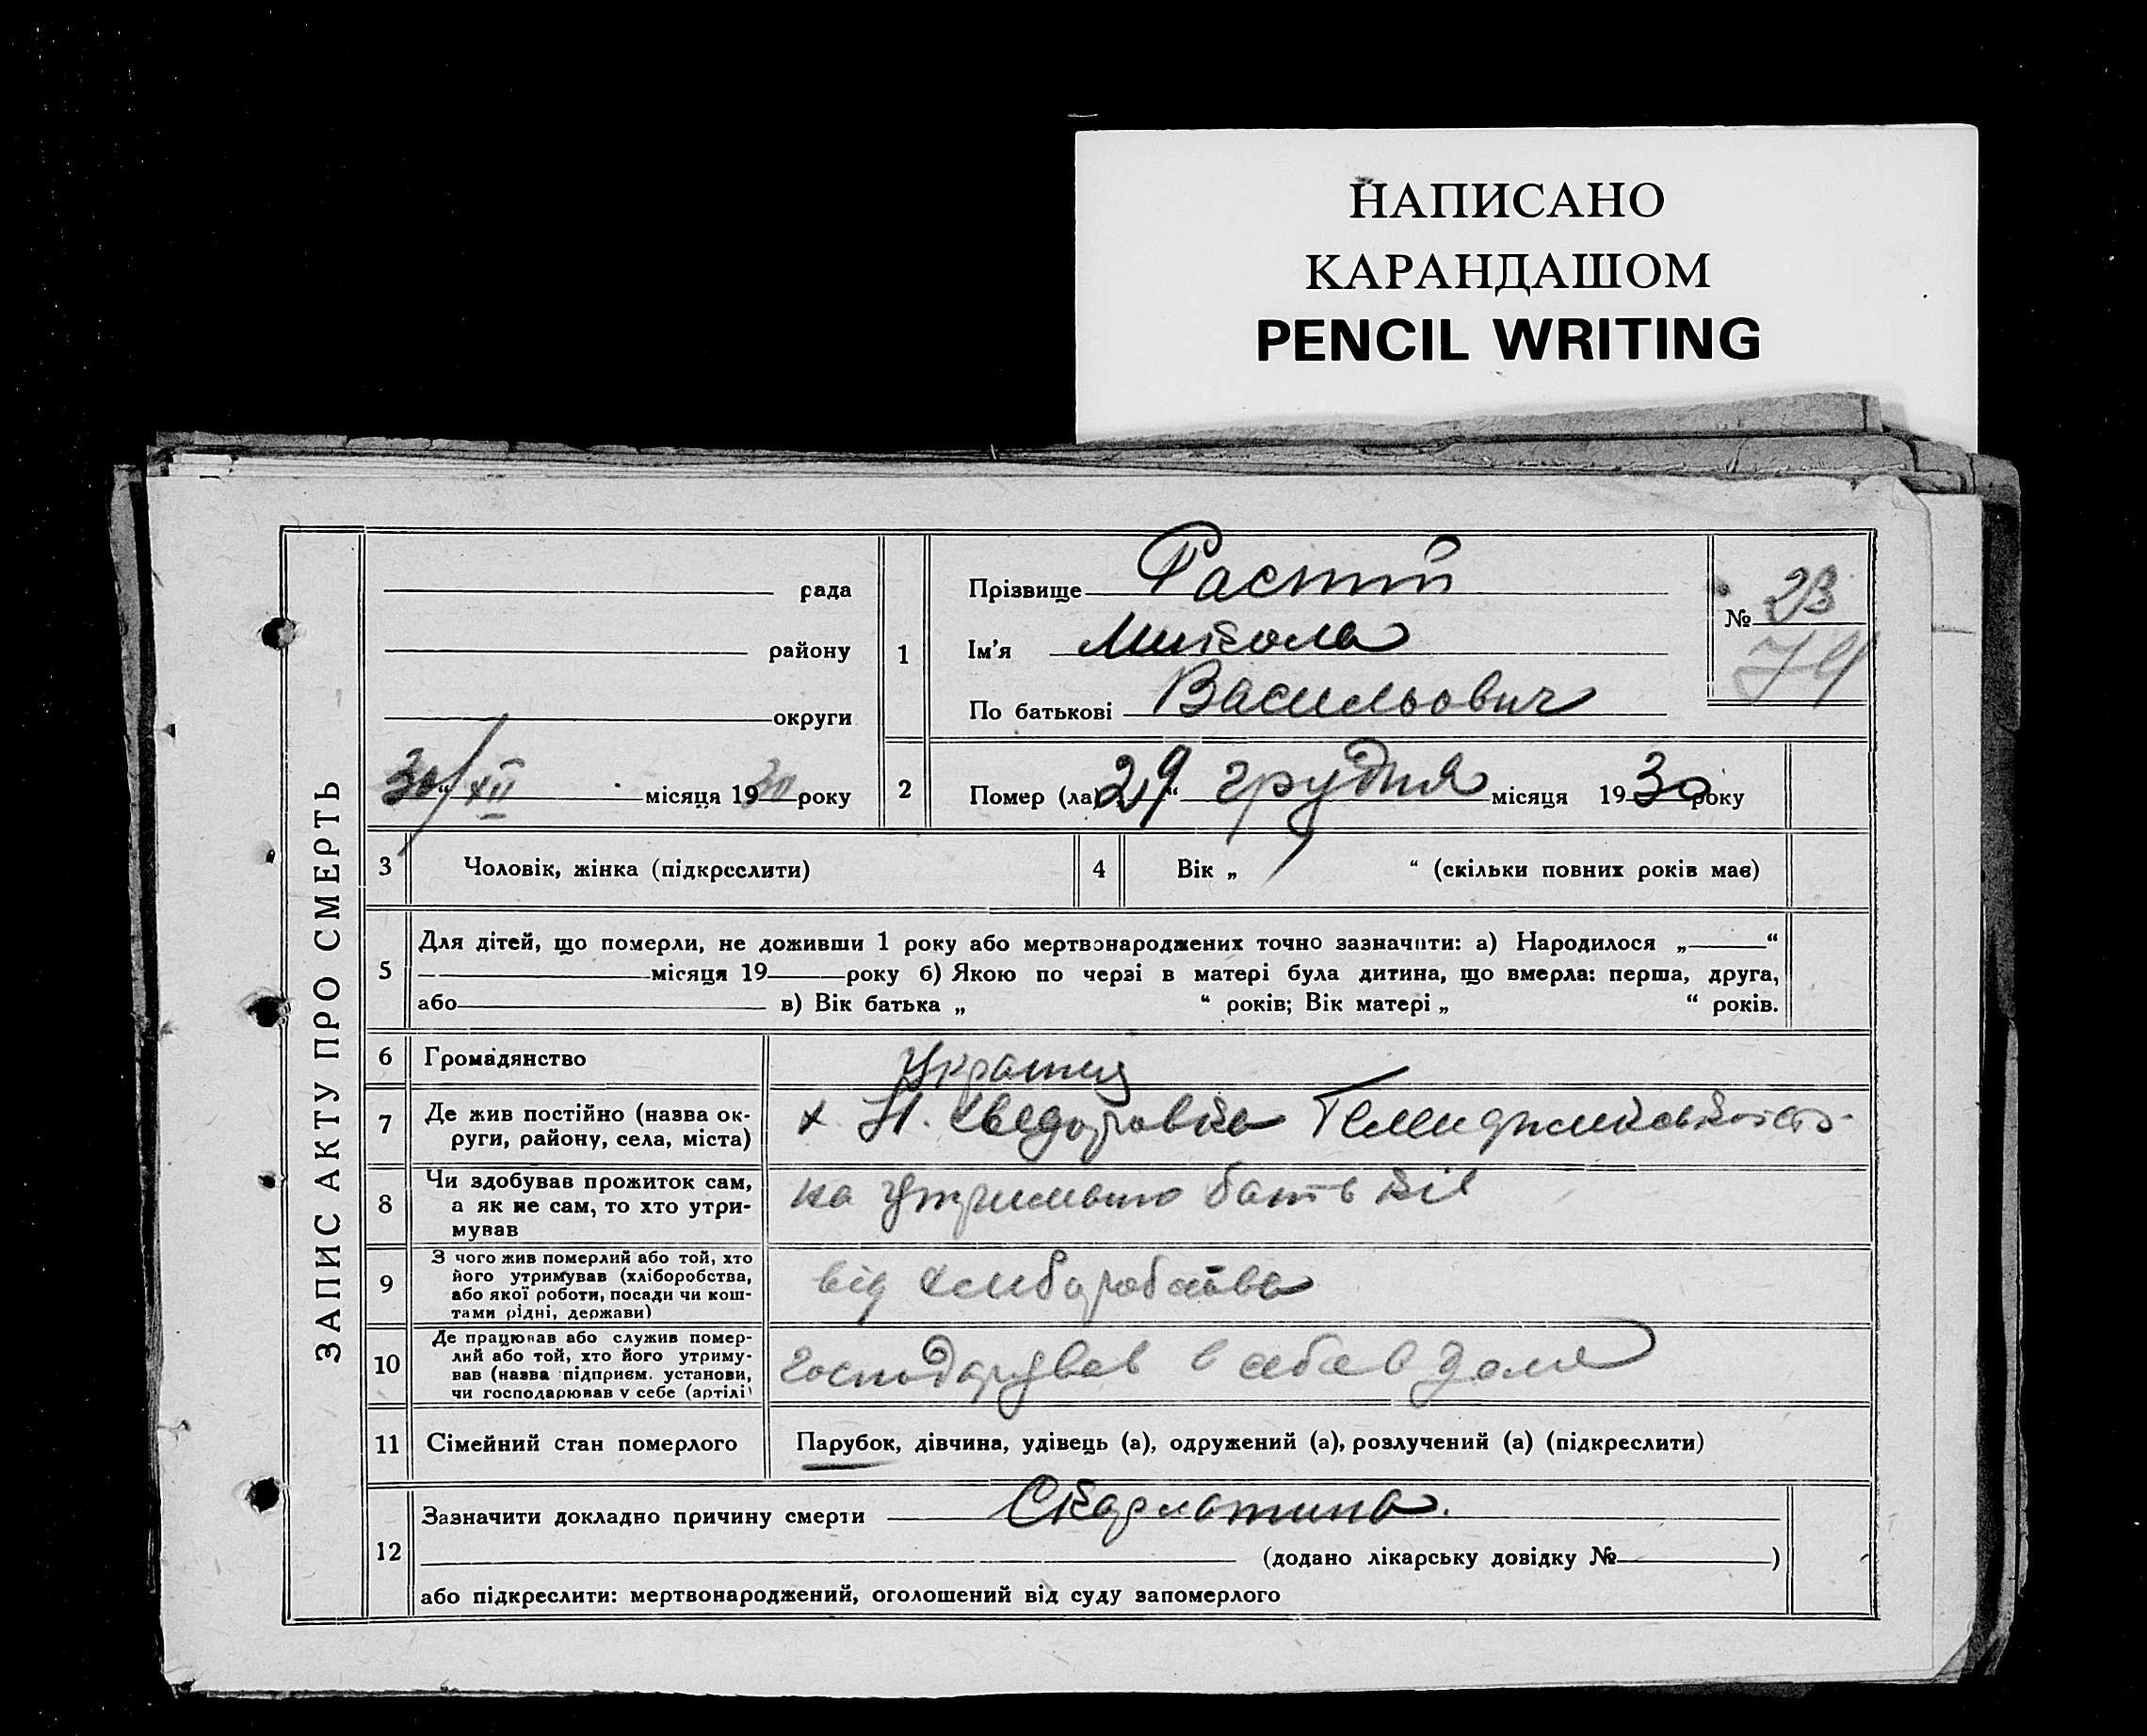 НАПИСАНО
КАРАНДАШОМ
PENCIL WRITING
ЗАПИС АКТУ ПРО СМЕРТЬ
рада
району
округи
30/XII місяця 1930 року
1
Прізвище
Ім'я Микола
По батькові Васильович
№ 23
79
2
Помер (ла) 29 “ грудня місяця 1930 року
3 Чоловік, жінка (підкреслити)
4 Вік „ “ (скільки повних років має)
5
Для дітей, що померли, не доживши 1 року або мертвонароджених точно зазначити: а) Народилося „ “
місяця 19 року б) Якою по черзі в матері була дитина, що вмерла: перша, друга,
або в) Вік батька „ “ років; Вік матері „ “ років.
6 Громадянство
7 Де жив постійно (назва ок-
руги, району, села, міста)
х. Н.
8 Чи здобував прожиток сам,
а як не сам, то хто утри-
мував
на батьків
9 З чого жив померлий або той, хто
його утримував (хліборобства,
або якої роботи, посади чи кош-
тами рідні, держави)
від хліборобства
10 Де працював або служив помер-
лий або той, хто його утриму-
вав (назва підприєм. установи,
чи господарював у себе (артілі)
господарував в себе в дома
11 Сімейний стан померлого
Парубок, дівчина, удівець (а), одружений (а), розлучений (а) (підкреслити)
12
Зазначити докладно причину смерти Скарлатина.
(додано лікарську довідку № )
або підкреслити: мертвонароджений, оголошений від суду запомерлого